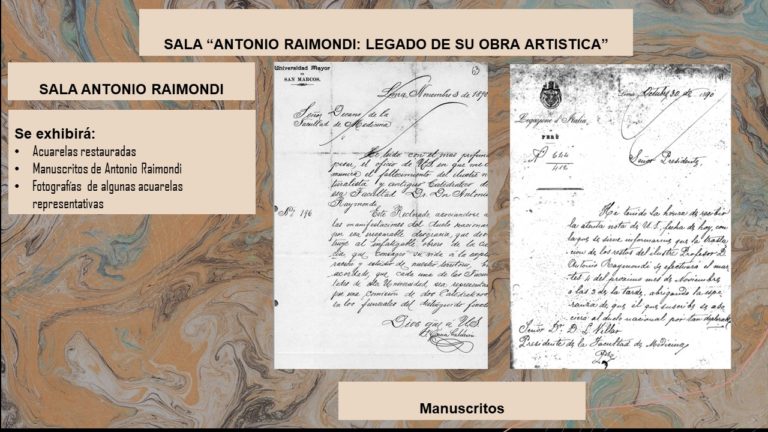 SALA “ANTONIO RAIMONDI: LEGADO DE SU OBRA ARTISTICA”
SALA ANTONIO RAIMONDI
Se exhibirá:
• Acuarelas restauradas
• Manuscritos de Antonio Raimondi
• Fotografías de algunas acuarelas
representativas
Universidad Mayor
DE
SAN MARCOS.
Lima, Noviembre 3 de 1890
Señor Decano de la
Facultad de Medicina
He leido con el mas profundo
pesar, el oficio de US. en que me co-
munica el fallecimiento del ilustre na-
turalista y antiguo Catedratico de
esa Facultad Dr. Don Antonio
Raymondi.
Nº 196
Este Rectorado asociandose a
las manifestaciones del duelo nacional
por esa irreparable desgracia, que
al infatigable obrero de la cien-
cia que consagró su vida a la explo-
racion y estudio de nuestro territorio, ha
acordado, que cada una de las Facul-
tades de esta Universidad, sea representada
por una comision de dos Catedraticos
en los funerales del distinguido
Dios gue. a US.
Legazione d'Italia
PERÚ
Lima, Octubre 30 de 1890
Nº
Señor Presidente,
He tenido la honra de recibir
la atenta nota de U.S. fecha de hoy, con
la que se sirve informarme que la trasla-
cion de los restos del ilustre Profesor D.
Antonio Raymondi se efectuará el mar-
tes 4 del proximo mes de Noviembre
á las 3 de la tarde, abrigando la espe-
ranza de que el que suscribe se aso-
ciará al duelo nacional por tan
Señor Dr. D. L. Villar
Presidente de la Facultad de Medicina
Manuscritos